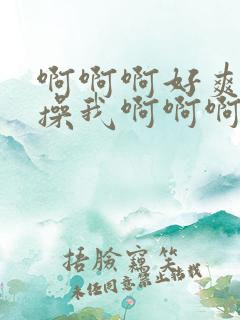 啊啊啊好爽
操我啊啊啊
捂脸窥笑
未经同意禁止转载